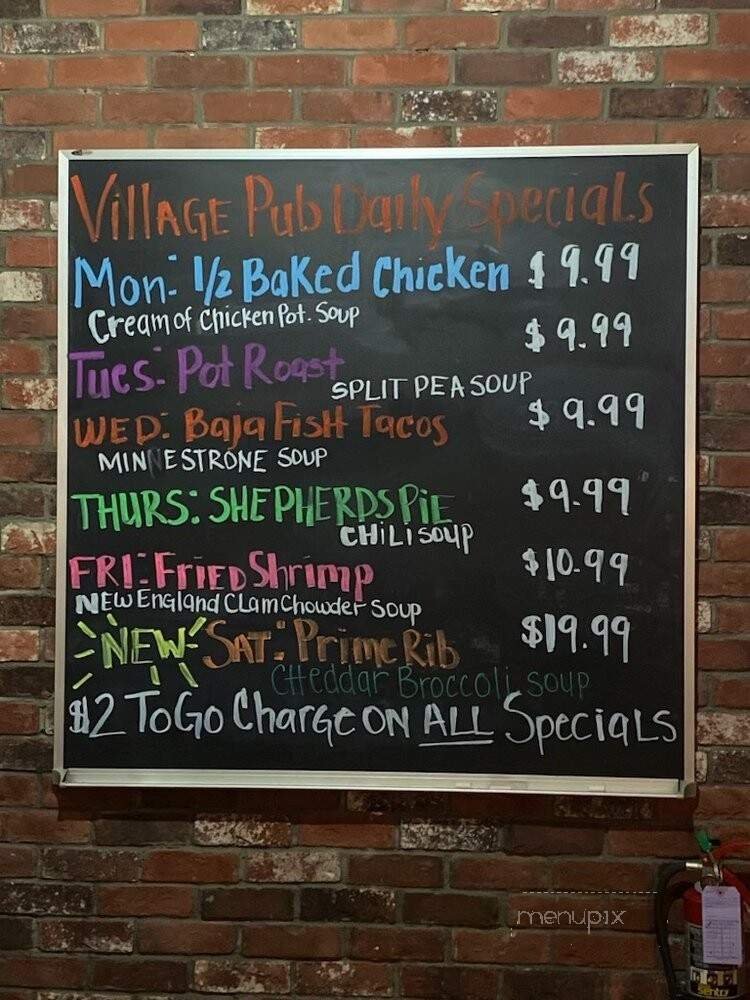 Village Pub Daily Specials
Mon: 1/2 Baked Chicken $9.99
Cream of Chicken Pot. Soup
Tues: Pot Roast $9.99
SPLIT PEA SOUP
WED: Baja Fish Tacos $9.99
MINNESTRONE SOUP
THURS: SHEPHERDS PiE $9.99
CHiLi soup
FRI: FRiED Shrimp $10.99
NEW England Clam Chowder Soup
NEW SAT: Prime Rib $19.99
Cheddar Broccoli soup
$2 ToGo Charge on ALL Specials
menupix
Sentry